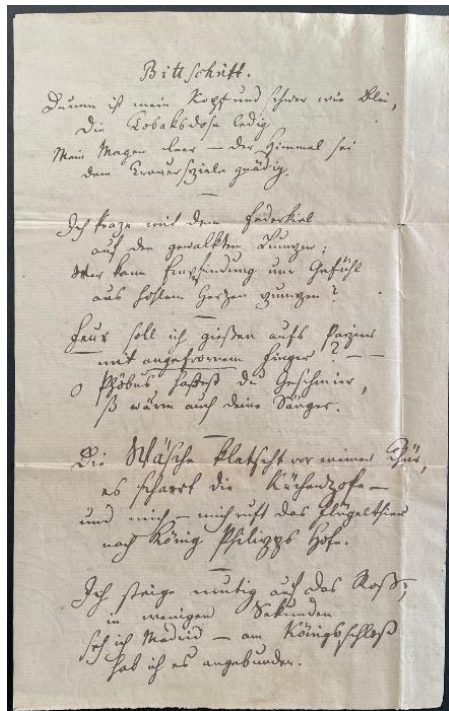 Bittschrift.
Dumm ist mein Kopf und schwer wie Blei,
die Tobaksdose ledig
Mein Magen leer – der Himmel sei
dem Trauerspiele gnädig.
Ich kraze mit dem Federkiel
auf den gewalkten Lumpen;
Wer kann Empfindung und Gefühl
aus hohlem Herzen pumpen?
Feur soll ich gießen aufs Papier
mit angefrornem Finger? – –
O Phöbus haßest du Geschmier,
so wärm auch deine Sänger.
Die Wäsche klatscht vor meiner Thür,
es scharrt die Küchenzofe –
und mich – mich ruft das Flügelthier
nach König Philipps Hofe.
Ich steige mutig auf das Roß;
in wenigen Sekunden
seh ich Madrid – am Königsschloß
hab ich es angebunden.